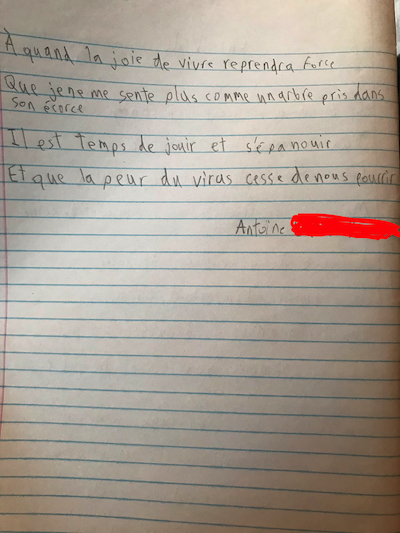 À quand la joie de vivre reprendra force
Que je ne me sente plus comme un arbre pris dans
son écorce
Il est temps de jouir et s'épanouir
Et que la peur du virus cesse de nous pourrir
Antoine